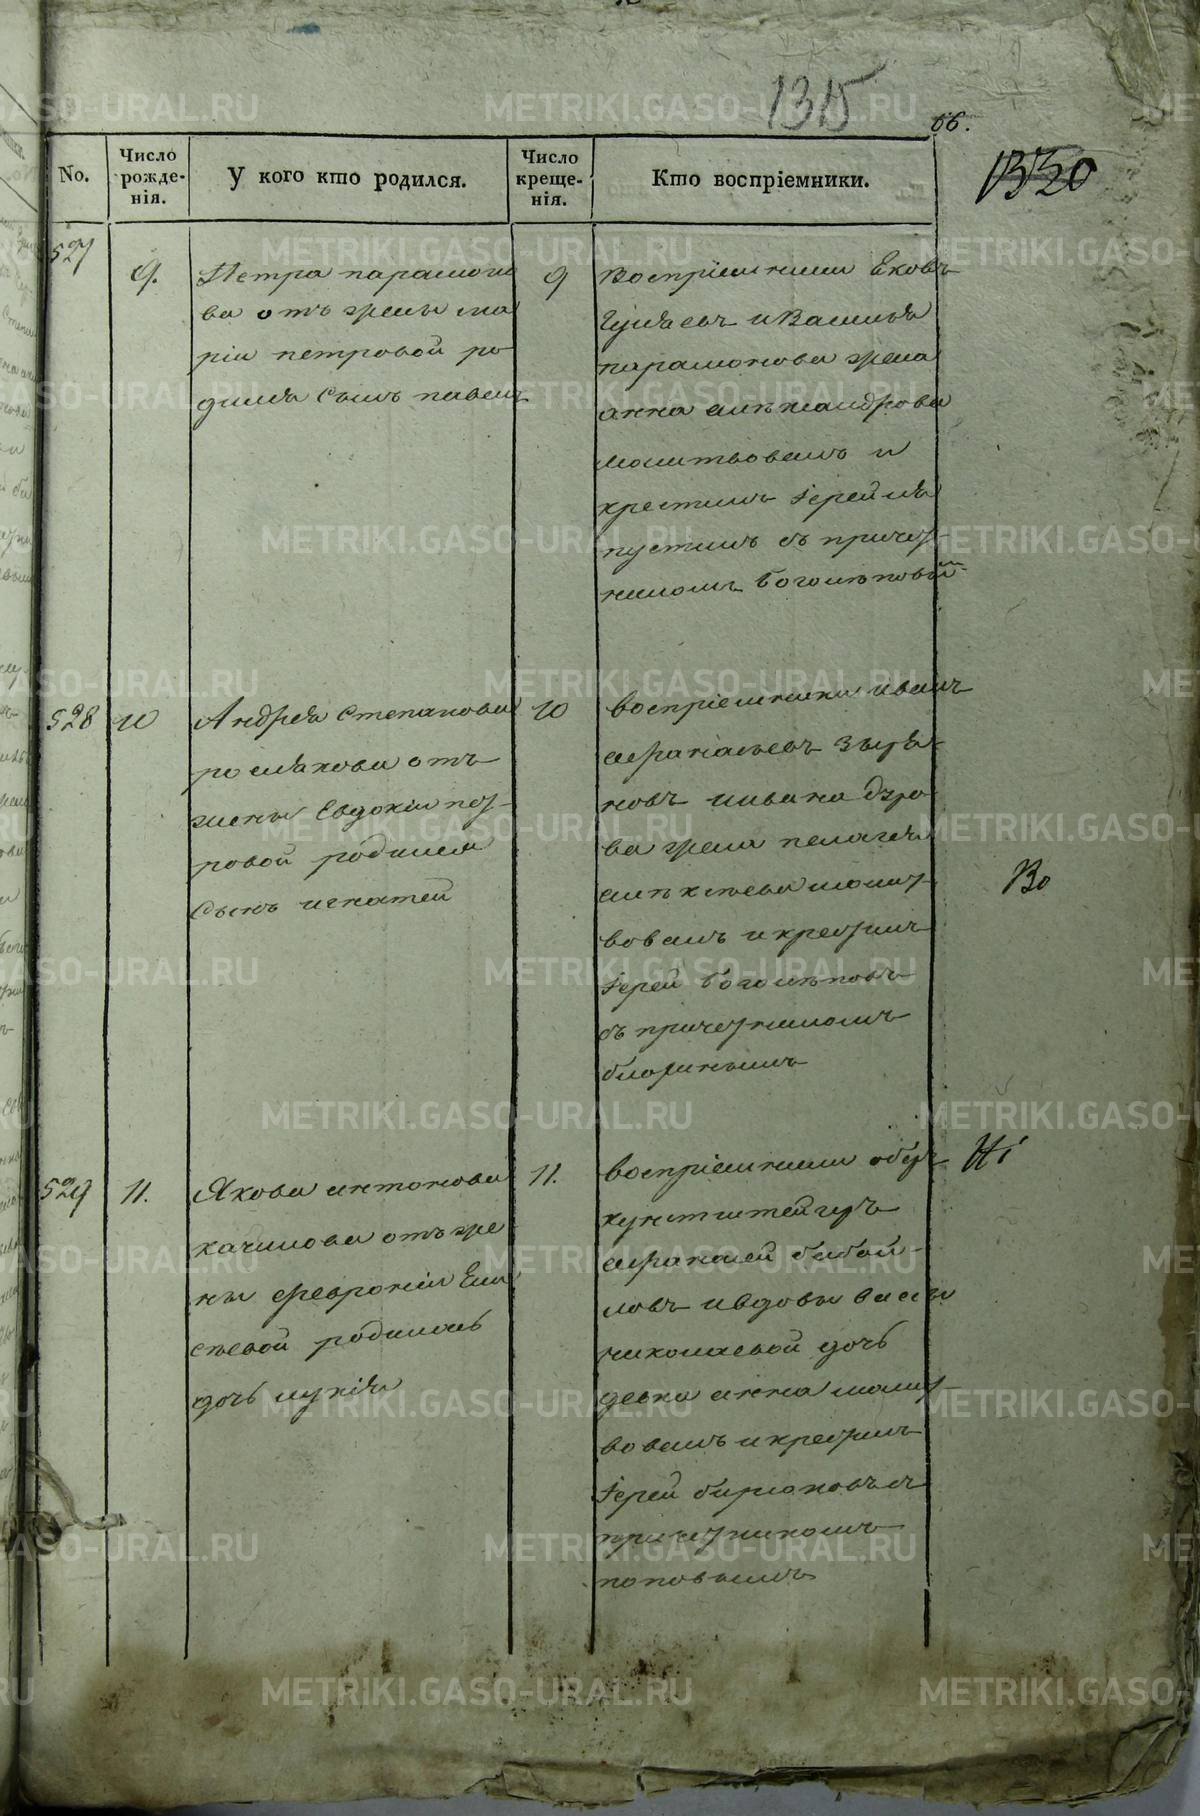 1315
66.
1320
No.
Число рожде-нія.
У кого кто родился.
Число креще-нія.
Кто воспріемники.
527
9.
Петра парамоно
ва отъ жены ма
ріи петровой ро
дился сынъ павелъ
9
Воспріемники Яковъ
и Василья
парамонова жена
анна александрова
молитвовалъ и
крестилъ Іерей
съ причет-
никомъ боголеповы
528
10
Андрея степанова
рослякова отъ
жены Евдокіи
ровой родился
сынъ игнатей
10
воспріемники иванъ
афанасьевъ Зыря-
новъ иивана
ва жена пелагея
алексеева молит-
вовалъ икрестилъ
Іерей боголеповъ
съ причетникомъ
Во
529
11.
Якова антонова
качалова отъ же
ны февроніи Ели
сеевой родилась
дочь лукія
11.
воспріемники обер-
кунстштейгеръ
афанасей
ловъ ивдовы
николаевой дочь
девка анна молит-
вовалъ икрестилъ
Іерей бирюковъ съ
причетникомъ
поповымъ
METRIKI.GASO-URAL.RU